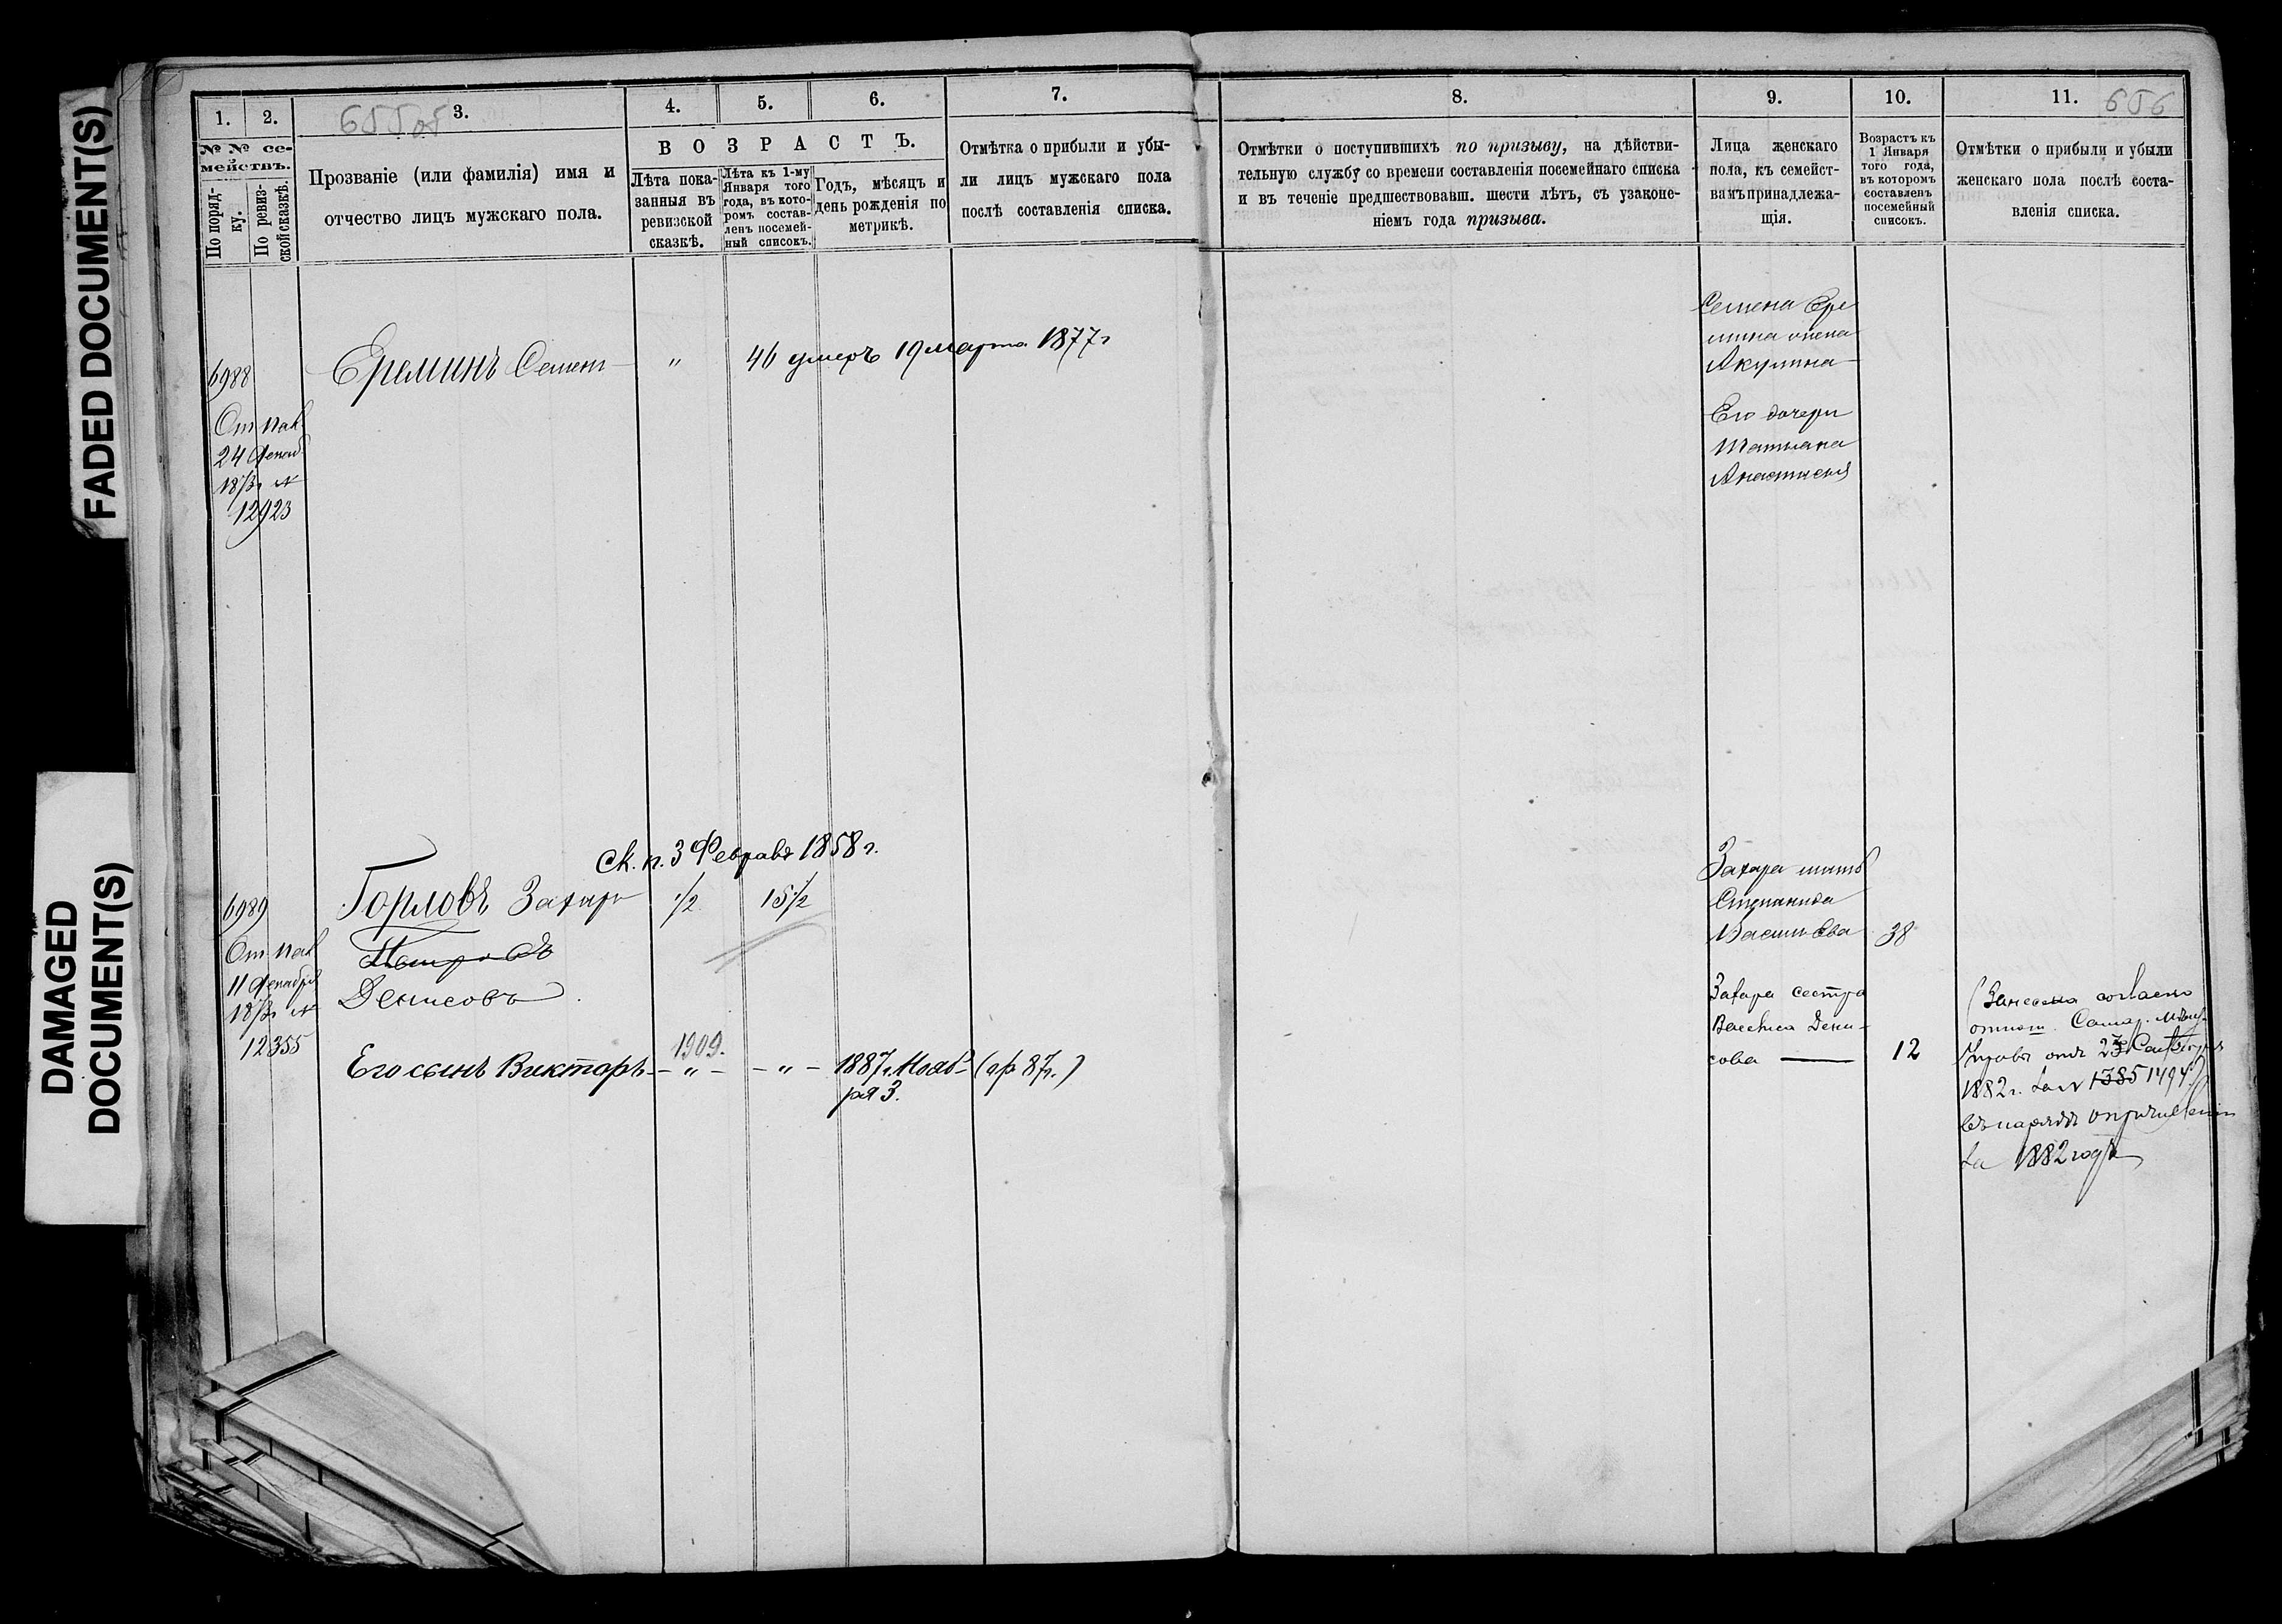 FADED DOCUMENT(S)
DAMAGED
DOCUMENT(S)
1.
2.
3.
4.
5.
6.
7.
№ № се-
мействъ.
По поряд-
ку.
По ревиз-
ской сказкѣ.
Прозваніе (или фамилія) имя и
отчество лицъ мужскаго пола.
ВОЗРАСТЪ.
Лѣта пока-
занныя въ
ревизской
сказкѣ.
Лѣта къ 1-му
Января того
года, въ кото-
ромъ состав-
ленъ посемей-
ный списокъ.
Годъ, мѣсяцъ и
день рожденія по
метрикѣ.
Отмѣтка о прибыли и убы-
ли лицъ мужскаго пола
послѣ составленія списка.
6988
Ереминъ Семен
"
46 умеръ 19 марта 1877 г
От
24
12923
Ск. п. 3 Февраля 1858 г.
6989
Горловъ Захаръ
1/2
15 1/2
От
11 Декабря
12355
Денисовъ
1909.
Его сынъ Викторъ - " - - " - 1887 г. Нояб-
ря 3.
(ар 87 г.)
8.
9.
10.
11.
656
Отмѣтки о поступившихъ по призыву, на дѣйстви-
тельную службу со времени составленія посемейнаго списка
и въ теченіе предшествовавш. шести лѣтъ, съ узаконе-
ніемъ года призыва.
Лица женскаго
пола, къ семейст-
вамъ принадлежа-
щія.
Возрастъ къ
1 Января
того года,
въ которомъ
составленъ
посемейный
списокъ.
Отмѣтки о прибыли и убыли
женскаго пола послѣ соста-
вленія списка.
Семена Ере
мина жена
Акулина
Его дочери
Татиана
Анастасия
Захара мать
Степанида
Василь ева 38
Захара сестра
Василиса Дени-
сова 12
(Занесена согласно
отнош. Самар. Мѣщ.
Управы отъ 23 Сентября
1882 г. за № 1385 1494)
въ нарядѣ о причислении
за 1882 годъ